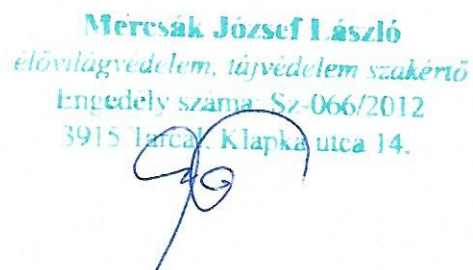 Mercsák József László
élővilágvédelem, tájvédelem szakértő
Engedély száma: Sz-066/2012
3915 Tarcal, Klapka utca 14.